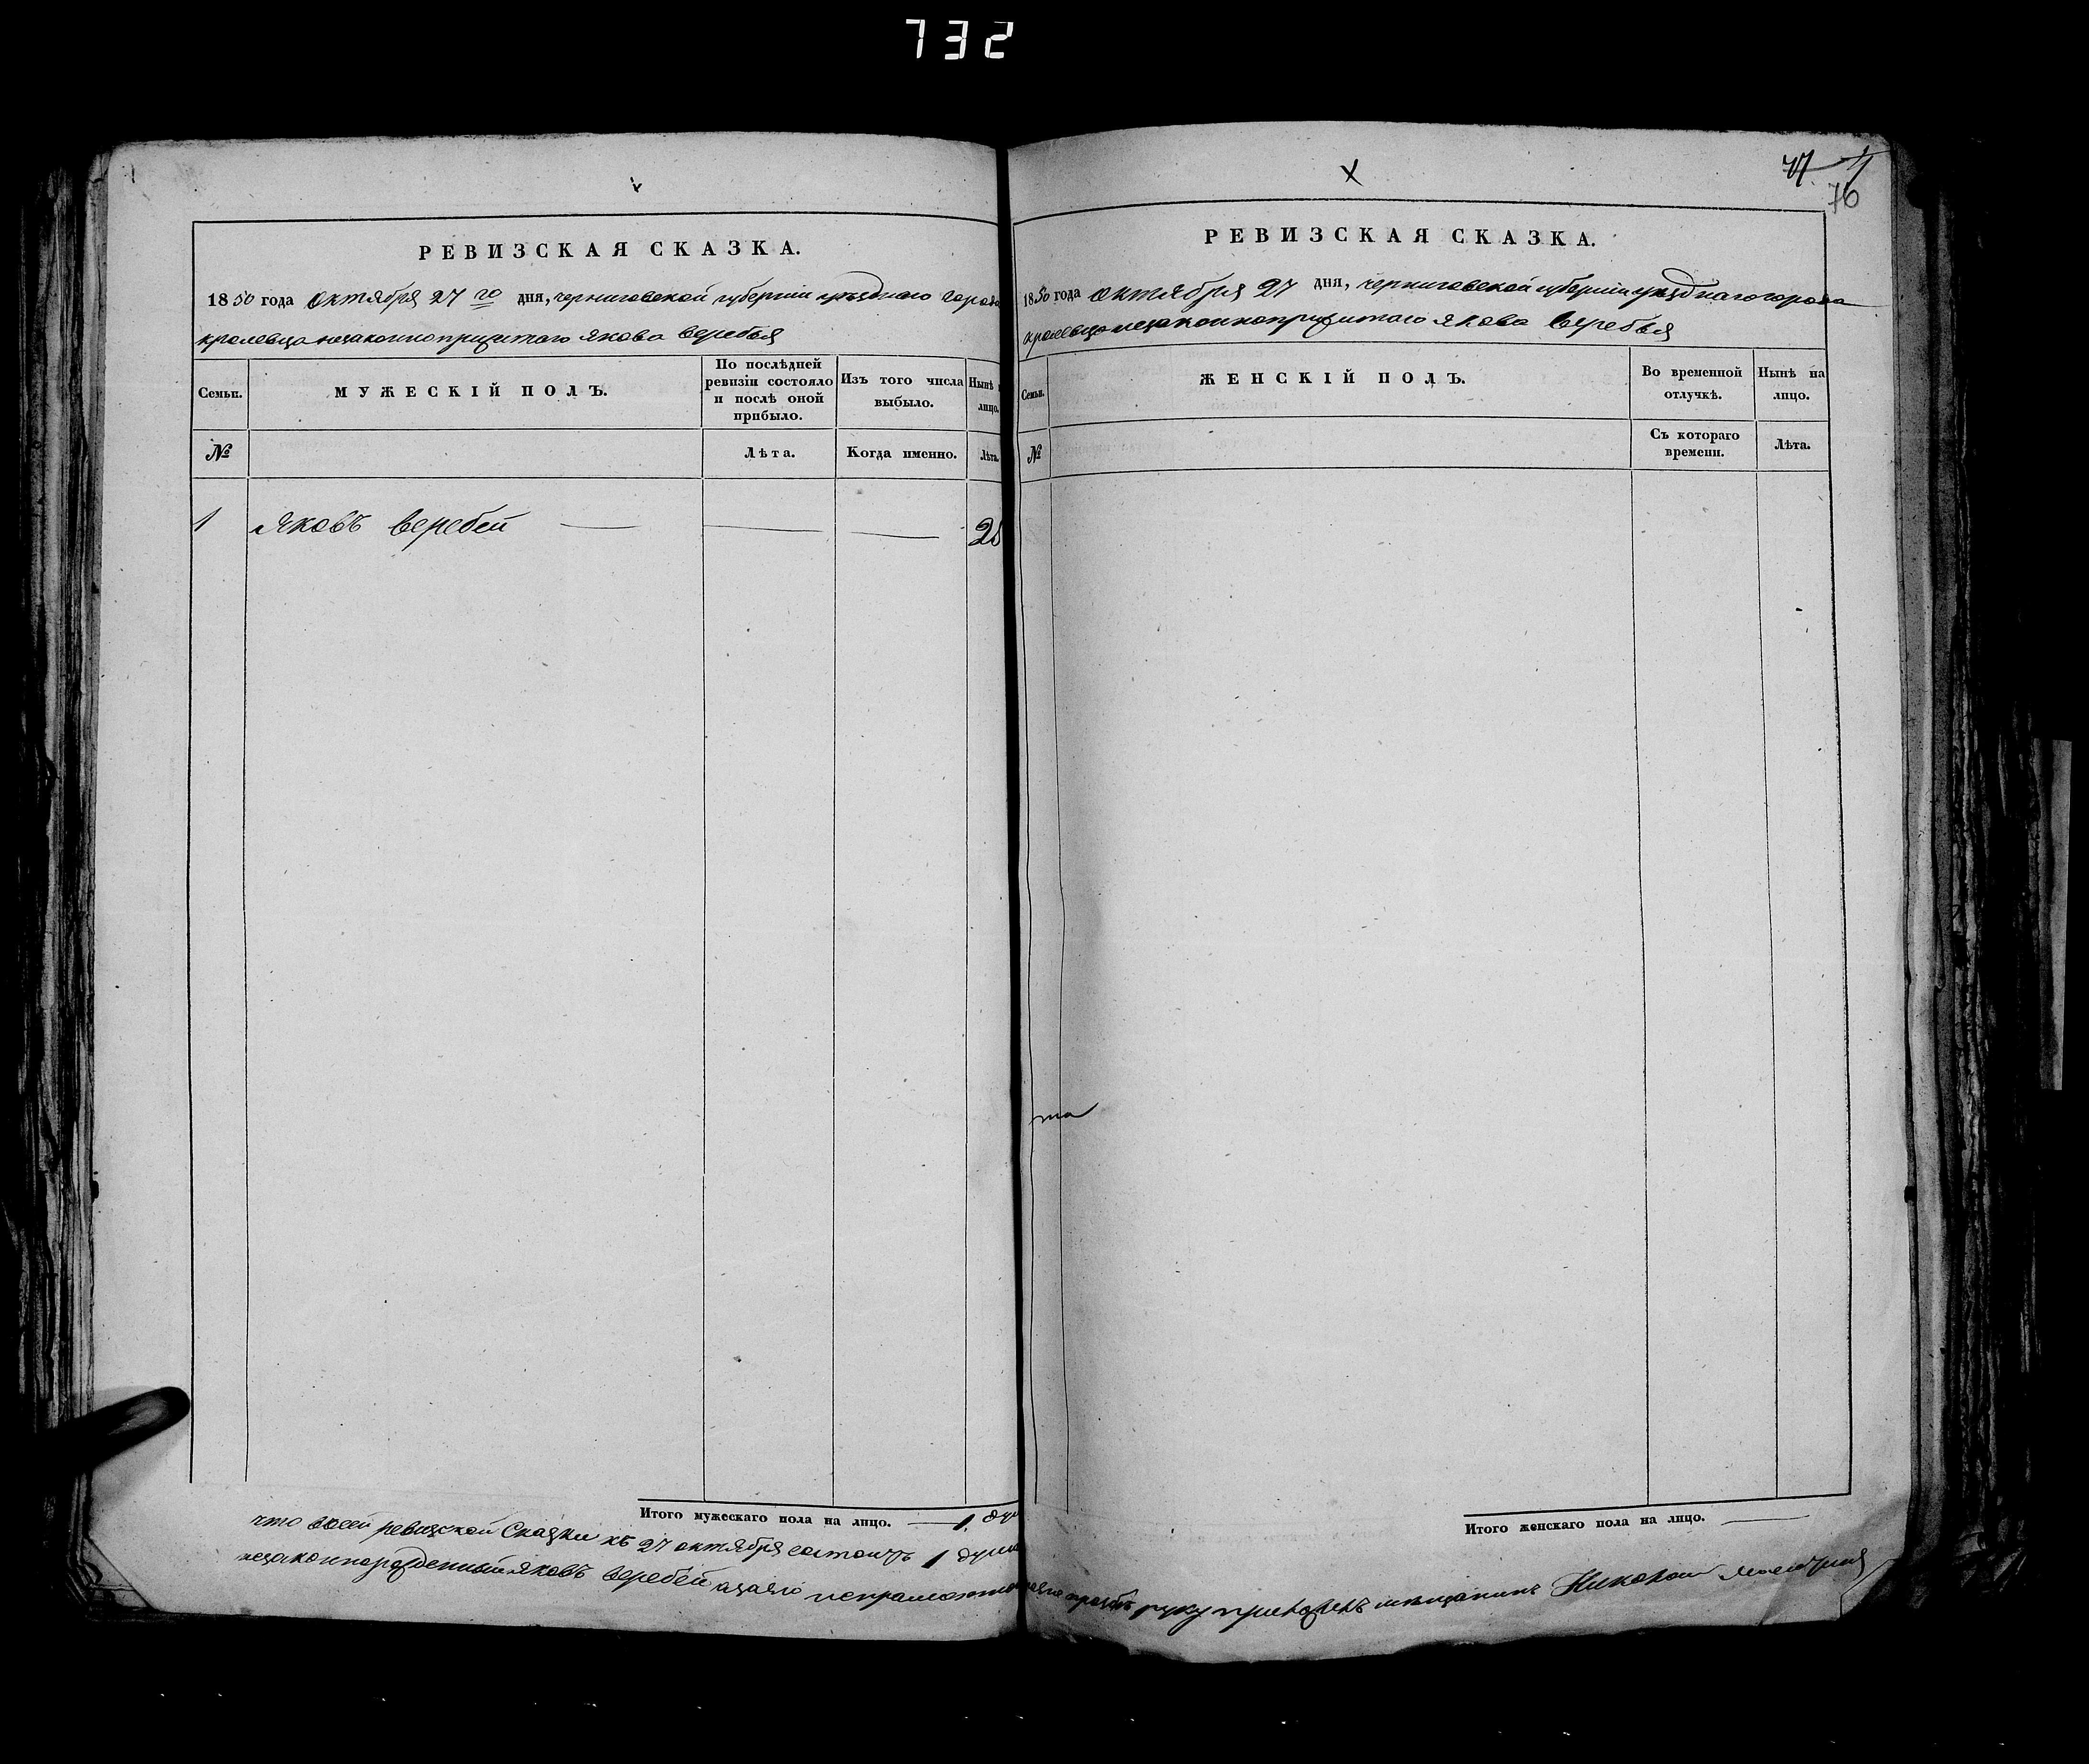 732
76
РЕВИЗСКАЯ СКАЗКА.
1850 года Октября 27го дня, черниговской губернии уѣзднаго города
кролевца незаконноприжитаго Якова Веребья
Семьи.
МУЖЕСКІЙ ПОЛЪ.
По послѣдней ревизіи состояло и послѣ оной прибыло.
Изъ того числа выбыло.
Нынѣ на лицо.
№
Лѣта.
Когда именно.
Лѣта.
1 Яковъ Веребей — — — 28
Итого мужескаго пола на лицо. — 1
что всей ревизской Сказки къ 27 октября состоитъ 1 душа
незаконнорожденный Яковъ Веребей азаего неграмотнаго
РЕВИЗСКАЯ СКАЗКА.
1850 года Октября 27 дня, черниговской губернии уѣзднаго города
кролевца незаконноприжитаго Якова Веребья
Семьи.
ЖЕНСКІЙ ПОЛЪ.
Во временной отлучкѣ.
Нынѣ на лицо.
№
Съ котораго времени.
Лѣта.
та
Итого женскаго пола на лицо. —
руку приложилъ мѣщанинъ Николай